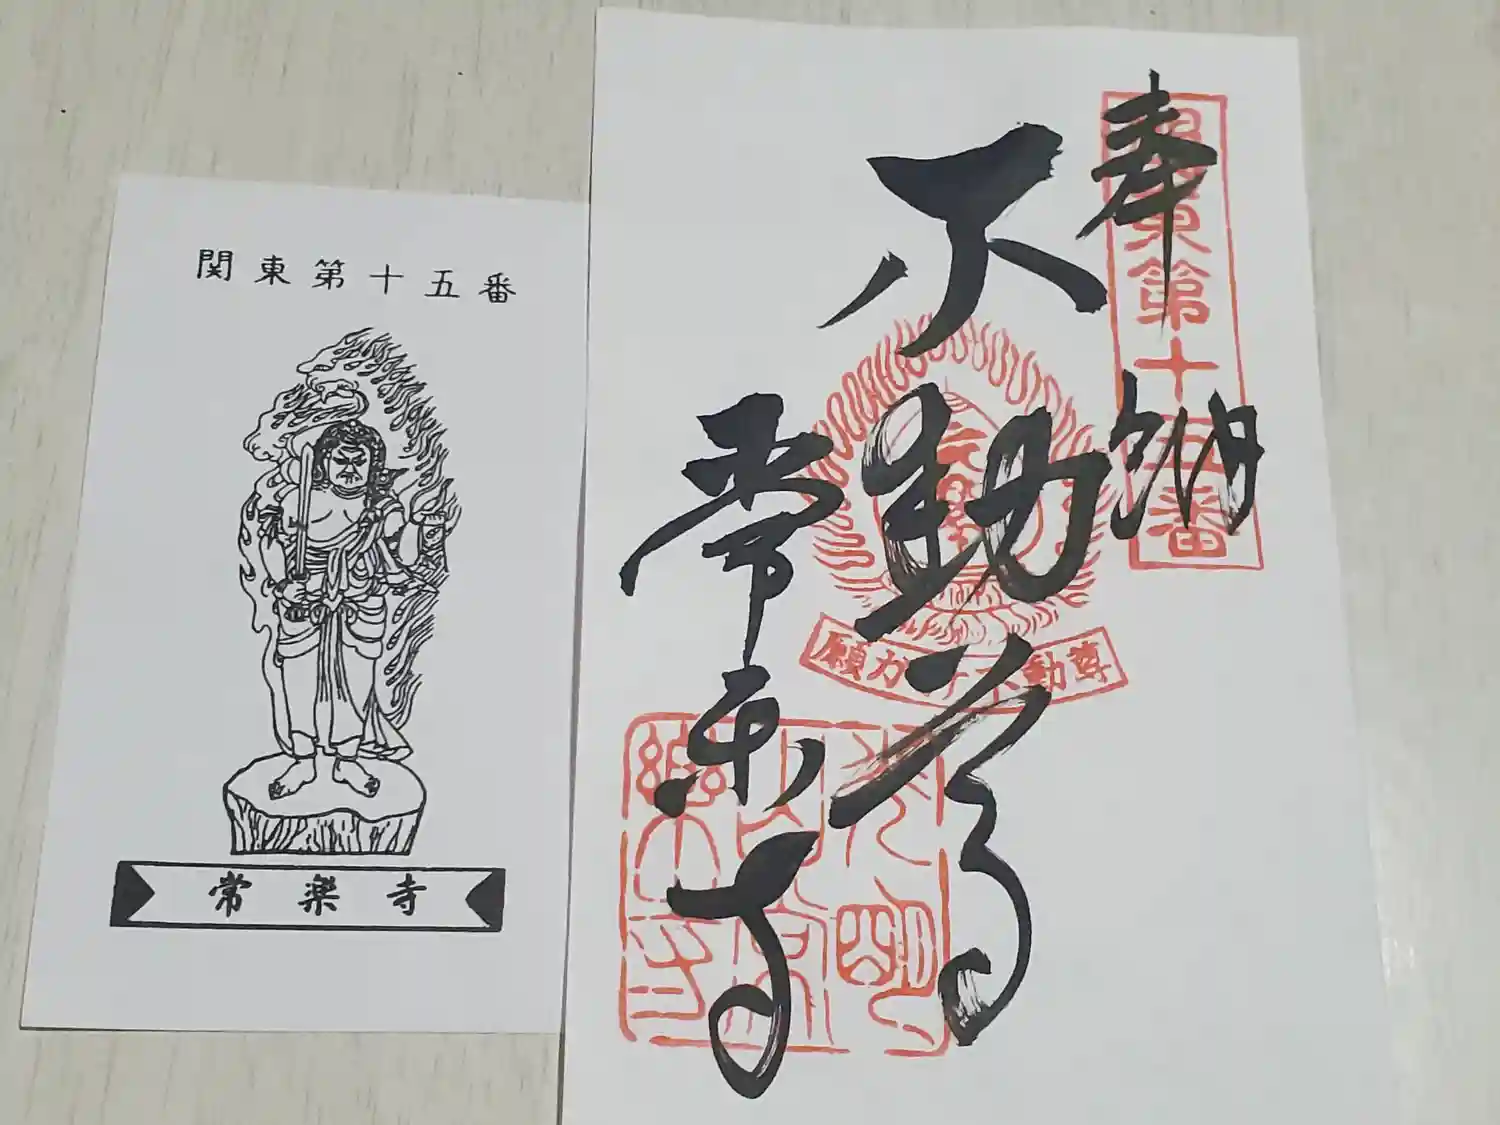 関東第十五番
常楽寺
奉納
関東第十五番
不動尊
願力
不動尊
常楽寺